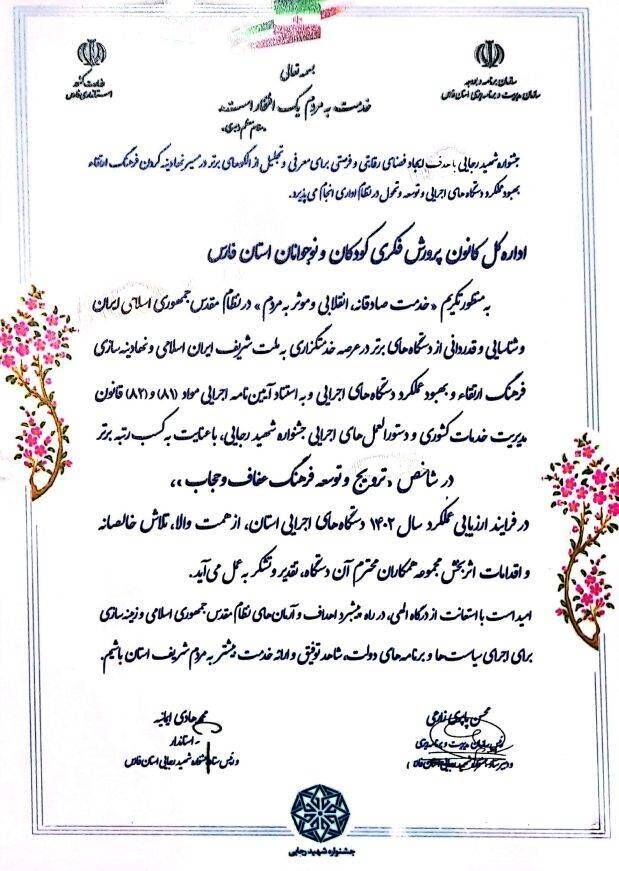 بسمه تعالی
خدمت به مردم یک افتخار است.
سازمان برنامه و بودجه
سازمان مدیریت و برنامه‌ریزی استان فارس
وزارت کشور
استانداری فارس
جشنواره شهید رجایی با هدف ایجاد فضای رقابتی و فرصتی برای معرفی و تجلیل از الگوهای برتر در مسیر نهادینه کردن فرهنگ ارتقاء
بهبود عملکرد دستگاه های اجرایی و توسعه و تحول در نظام اداری انجام می پذیرد.
اداره کل کانون پرورش فکری کودکان و نوجوانان استان فارس
به منظور تکریم «خدمت صادقانه، انقلابی و موثر به مردم» در نظام مقدس جمهوری اسلامی ایران
و شناسایی و قدردانی از دستگاه های برتر در عرصه خدمتگزاری به ملت شریف ایران اسلامی و نهادینه سازی
فرهنگ ارتقاء و بهبود عملکرد دستگاه های اجرایی و به استناد آیین نامه اجرایی مواد (۸۱) و (۸۲) قانون
مدیریت خدمات کشوری و دستورالعمل های اجرایی جشنواره شهید رجایی، با عنایت به کسب رتبه برتر
در شاخص «ترویج و توسعه فرهنگ عفاف و حجاب»،
در فرایند ارزیابی عملکرد سال ۱۴۰۲ دستگاه های اجرایی استان، از همت والا، تلاش خالصانه
و اقدامات اثربخش مجموعه همکاران محترم آن دستگاه، تقدیر و تشکر به عمل می آید.
امید است با استعانت از درگاه الهی، در راه پیشبرد اهداف و آرمان های نظام مقدس جمهوری اسلامی و زمینه سازی
برای اجرای سیاست ها و برنامه های دولت، شاهد توفیق و ارائه خدمت بیشتر به مردم شریف استان باشیم.
محمدهادی ایمانیه
استاندار
و رئیس ستاد جشنواره شهید رجایی استان فارس
رئیس سازمان مدیریت و برنامه ریزی
جشنواره شهید رجایی